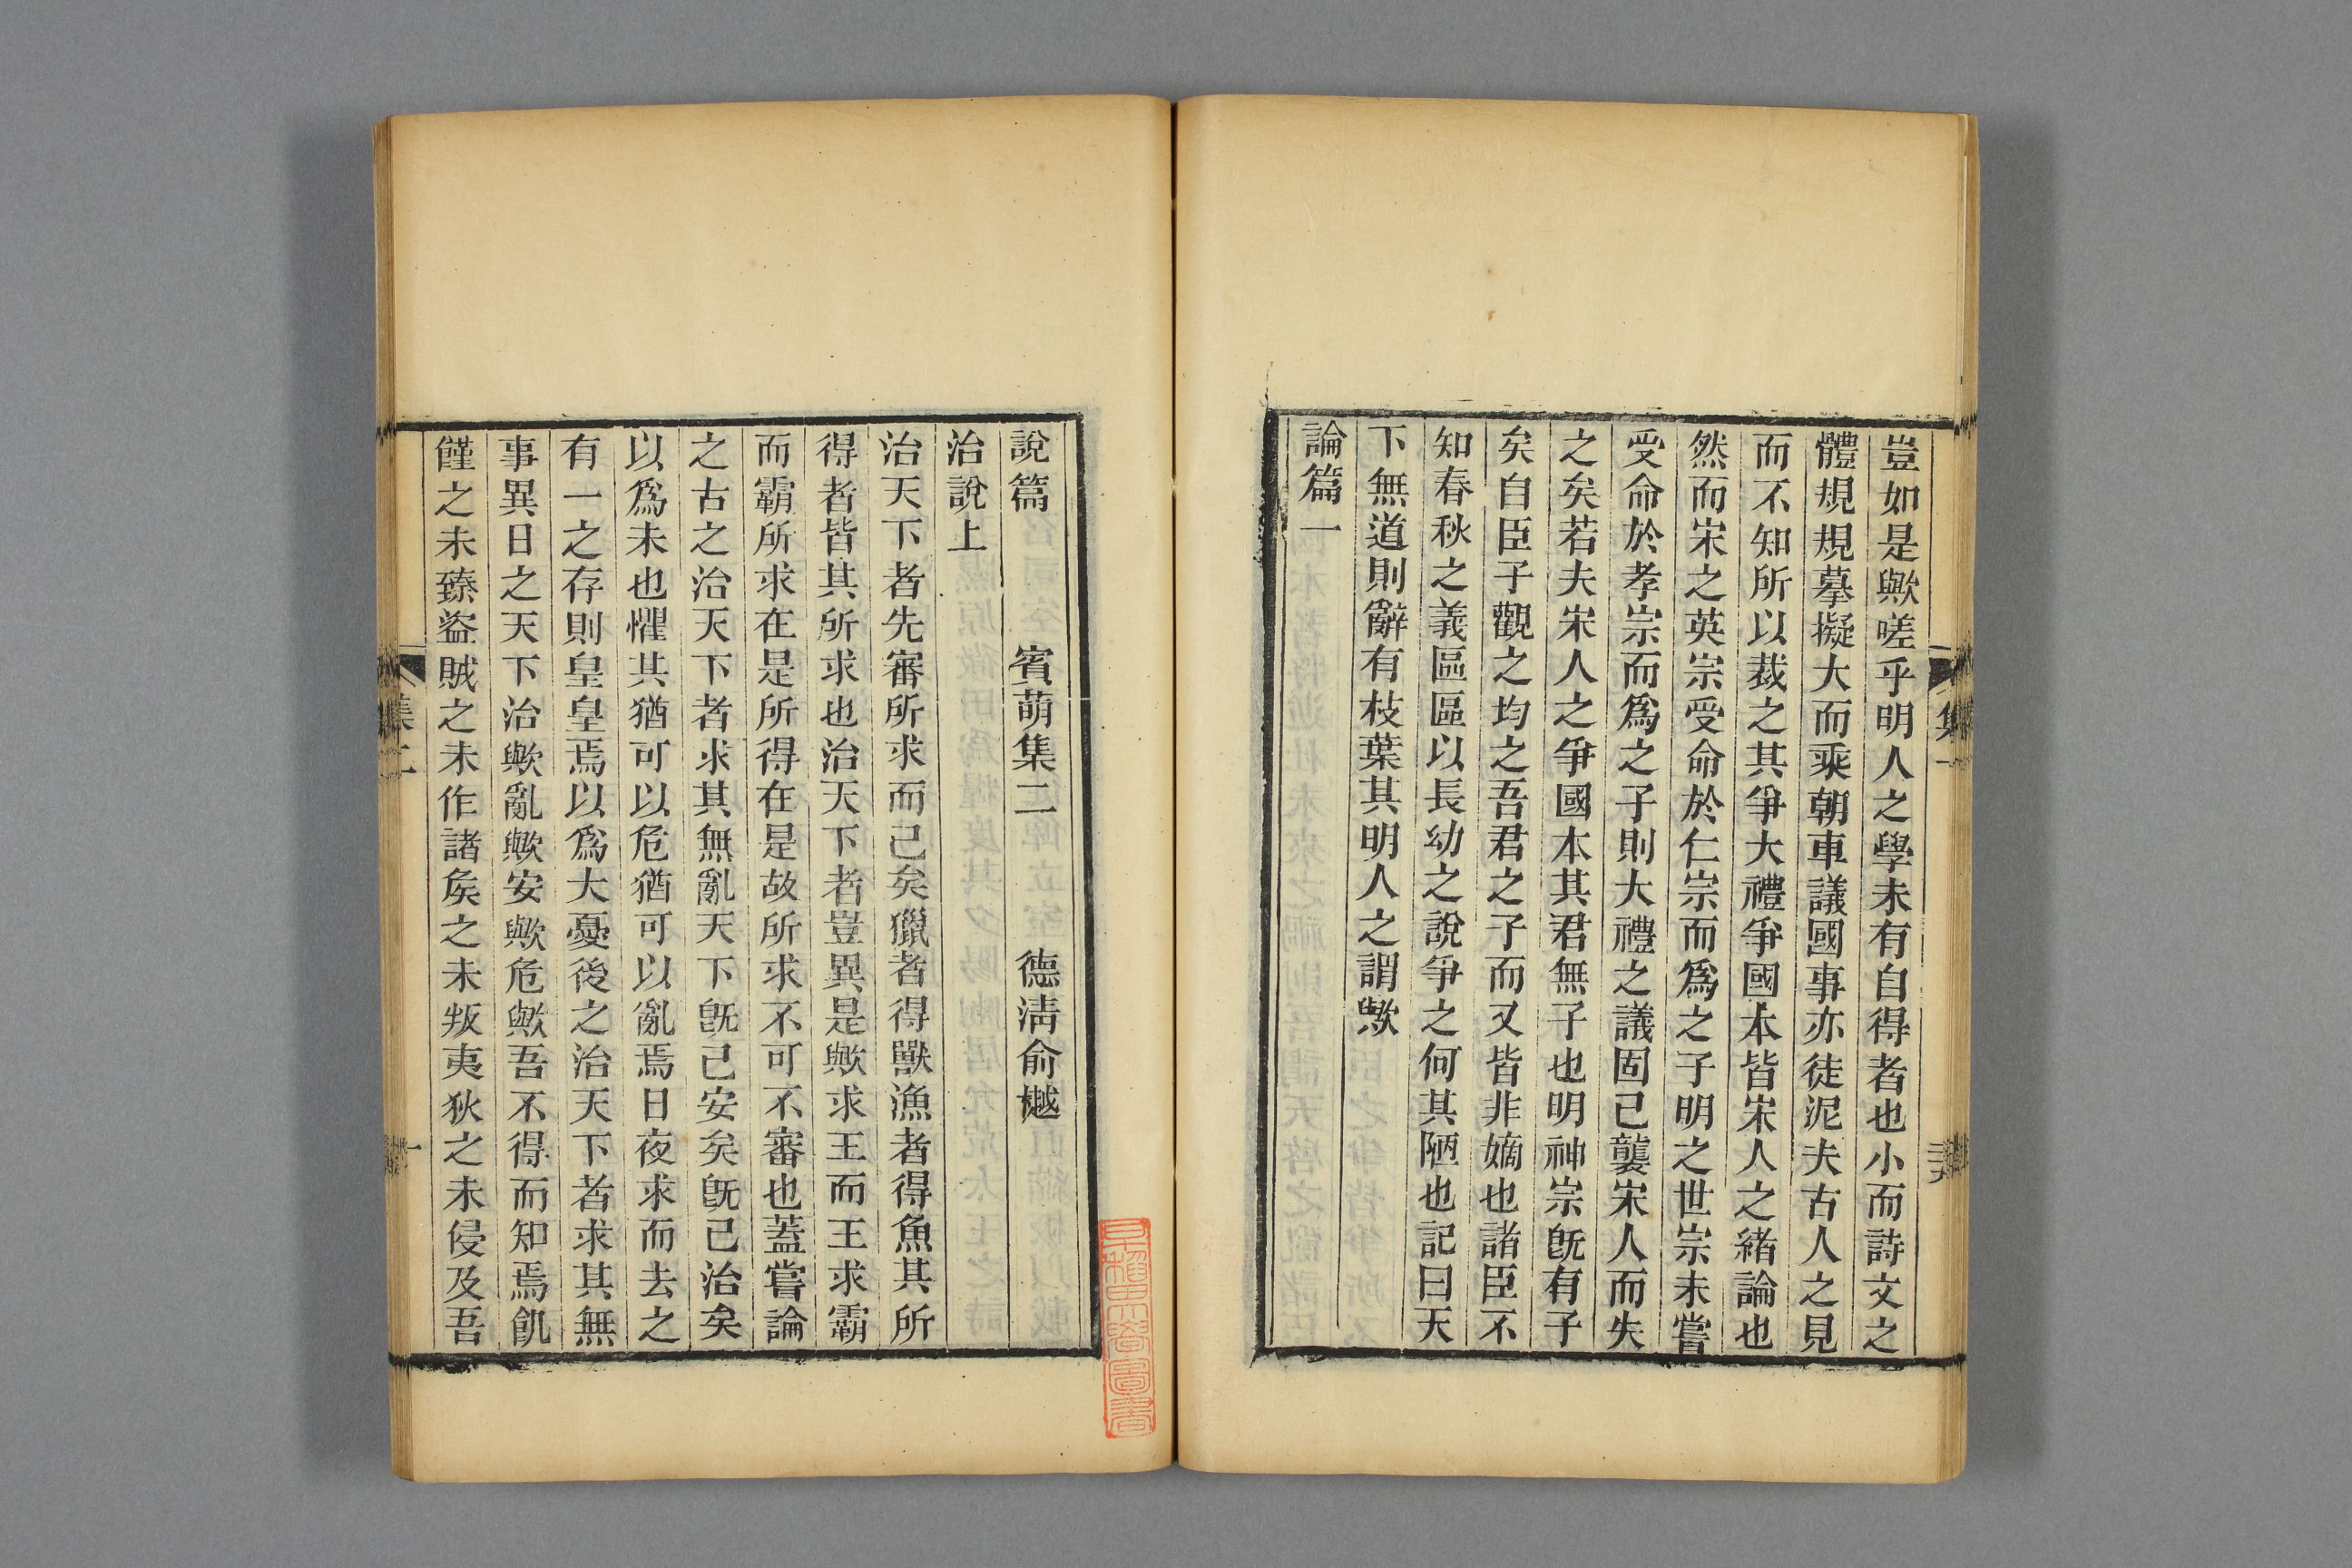 豈如是歟嗟乎明人之學未有自得者也小而詩文之
體規規摹擬大而乘朝車議國事亦徒泥夫古人之見
而不知所以裁之其爭大禮爭國本皆宋人之緒論也
然而宋之英宗受命於仁宗而爲之子明之世宗未嘗
受命於孝宗而爲之子則大禮之議固已襲宋人而失
之矣若夫宋人之爭國本其君無子也明神宗旣有子
矣自臣子觀之均之吾君之子而又皆非嫡也諸臣不
知春秋之義區區以長幼之說爭之何其陋也記曰天
下無道則辭有枝葉其明人之謂歟
論篇一
說篇 賓萌集二 德淸俞樾
治說上
治天下者先審所求而已矣獵者得獸漁者得魚其所
得者皆其所求也治天下者豈異是歟求王而王求霸
而霸所求在是所得在是故所求不可不審也蓋嘗論
之古之治天下者求其無亂天下旣已安矣旣已治矣
以爲未也懼其猶可以危猶可以亂焉日夜求而去之
有一之存則皇皇焉以爲大憂後之治天下者求其無
事異日之天下治歟亂歟安歟危歟吾不得而知焉飢
饉之未臻盜賊之未作諸矦之未叛夷狄之未侵及吾
集二
一
早稲田大學圖書